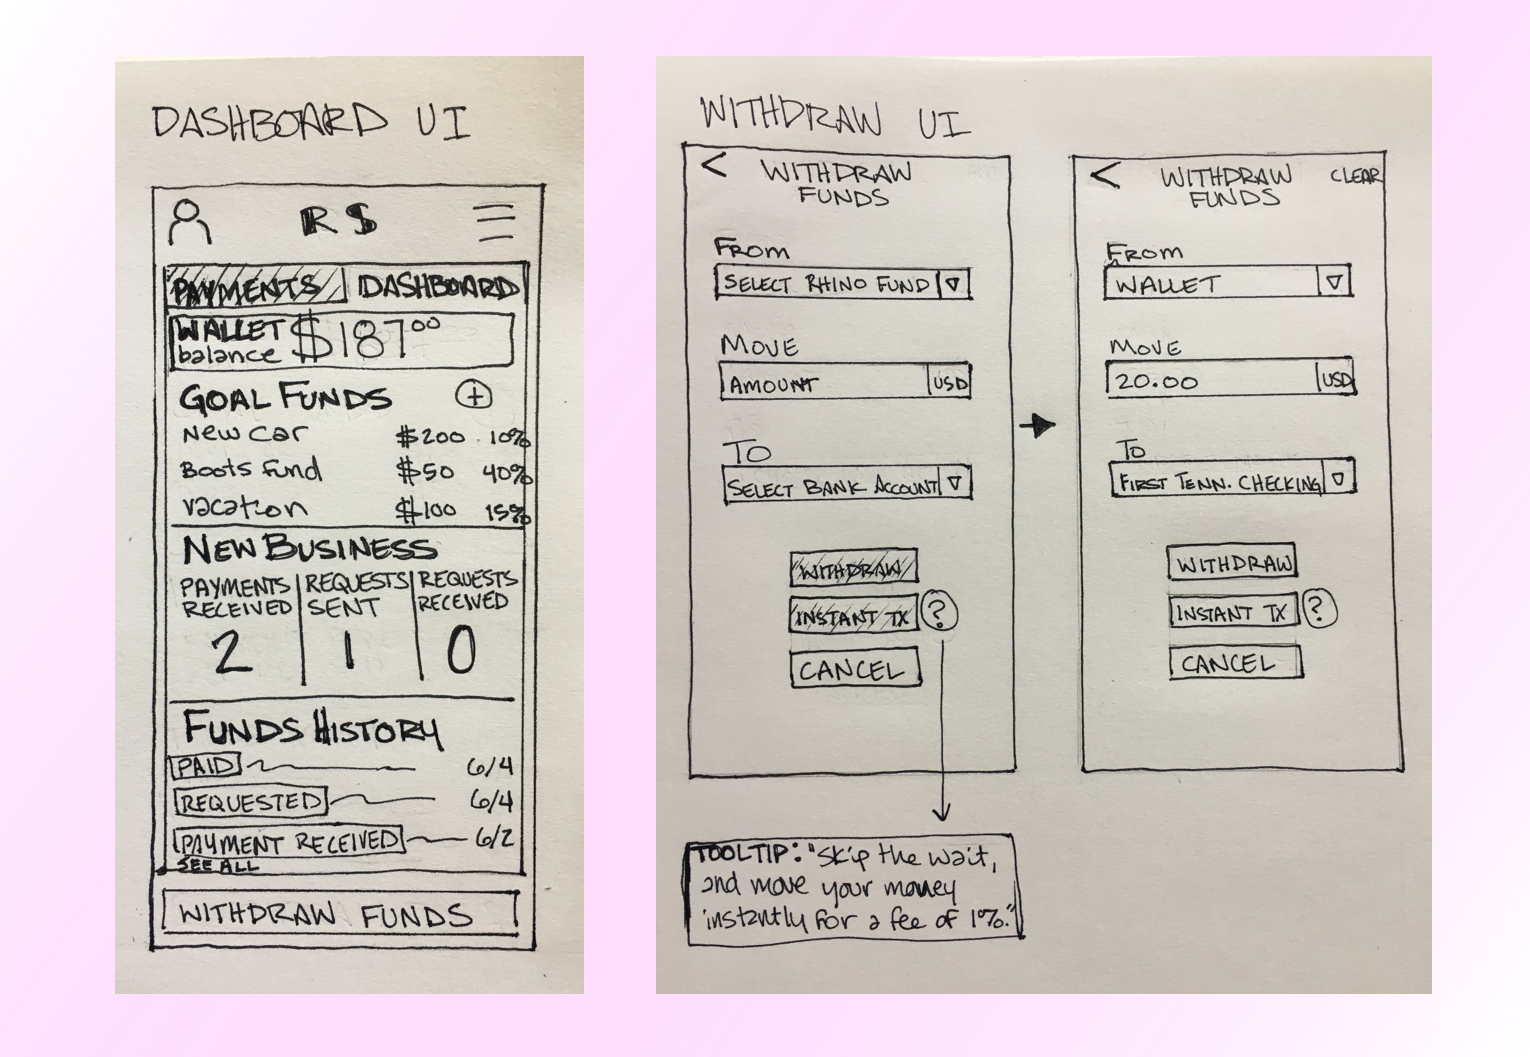 DASHBOARD UI
R $
PAYMENTS DASHBOARD
WALLET balance $187⁰⁰
GOAL FUNDS +
New car $200 10%
Boots fund $50 40%
vacation $100 15%
NEW BUSINESS
PAYMENTS RECEIVED
2
REQUESTS SENT
1
REQUESTS RECEIVED
0
FUNDS HISTORY
PAID 6/4
REQUESTED 6/4
PAYMENT RECEIVED 6/2
SEE ALL
WITHDRAW FUNDS
WITHDRAW UI
< WITHDRAW
FUNDS
FROM
SELECT RHINO FUND
MOVE
AMOUNT USD
TO
SELECT BANK ACCOUNT
WITHDRAW
INSTANT TX ?
CANCEL
TOOLTIP: "Skip the wait,
and move your money
instantly for a fee of 1%."
< WITHDRAW CLEAR
FUNDS
FROM
WALLET
MOVE
20.00 USD
TO
FIRST TENN. CHECKING
WITHDRAW
INSTANT TX ?
CANCEL